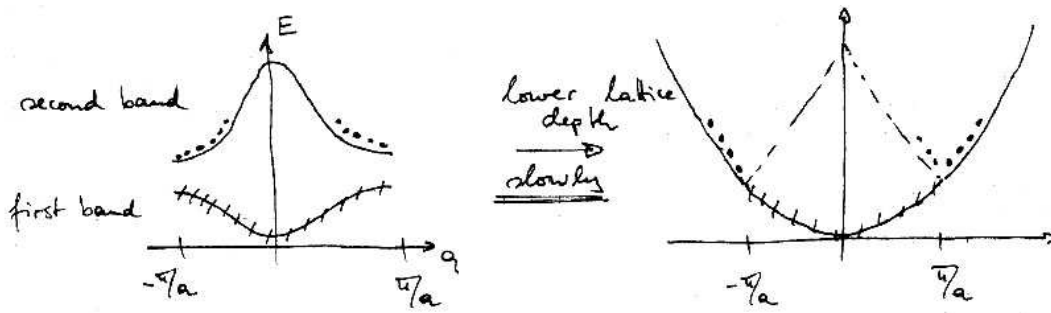 E
second band
first band
-π/a
π/a
q
lower lattice
depth
slowly
-π/a
π/a